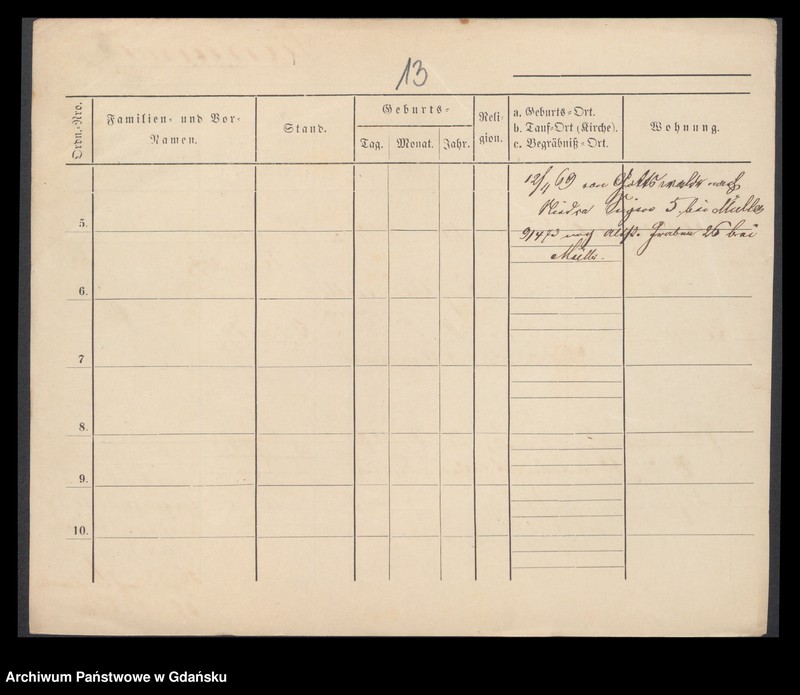 13
Ordn.-Nro.
Familien- und Vor-
Namen.
Stand.
Geburts-
Tag.
Monat.
Jahr.
Reli-
gion.
a. Geburts-Ort.
b. Tauf-Ort (Kirche).
c. Begräbniß-Ort.
Wohnung.
12/1 69 von Gottswalde nach
5 bei Müller
5.
9/4 73 nach Altst. Graben 26 bei
6.
7
8.
9.
10.
Archiwum Państwowe w Gdańsku